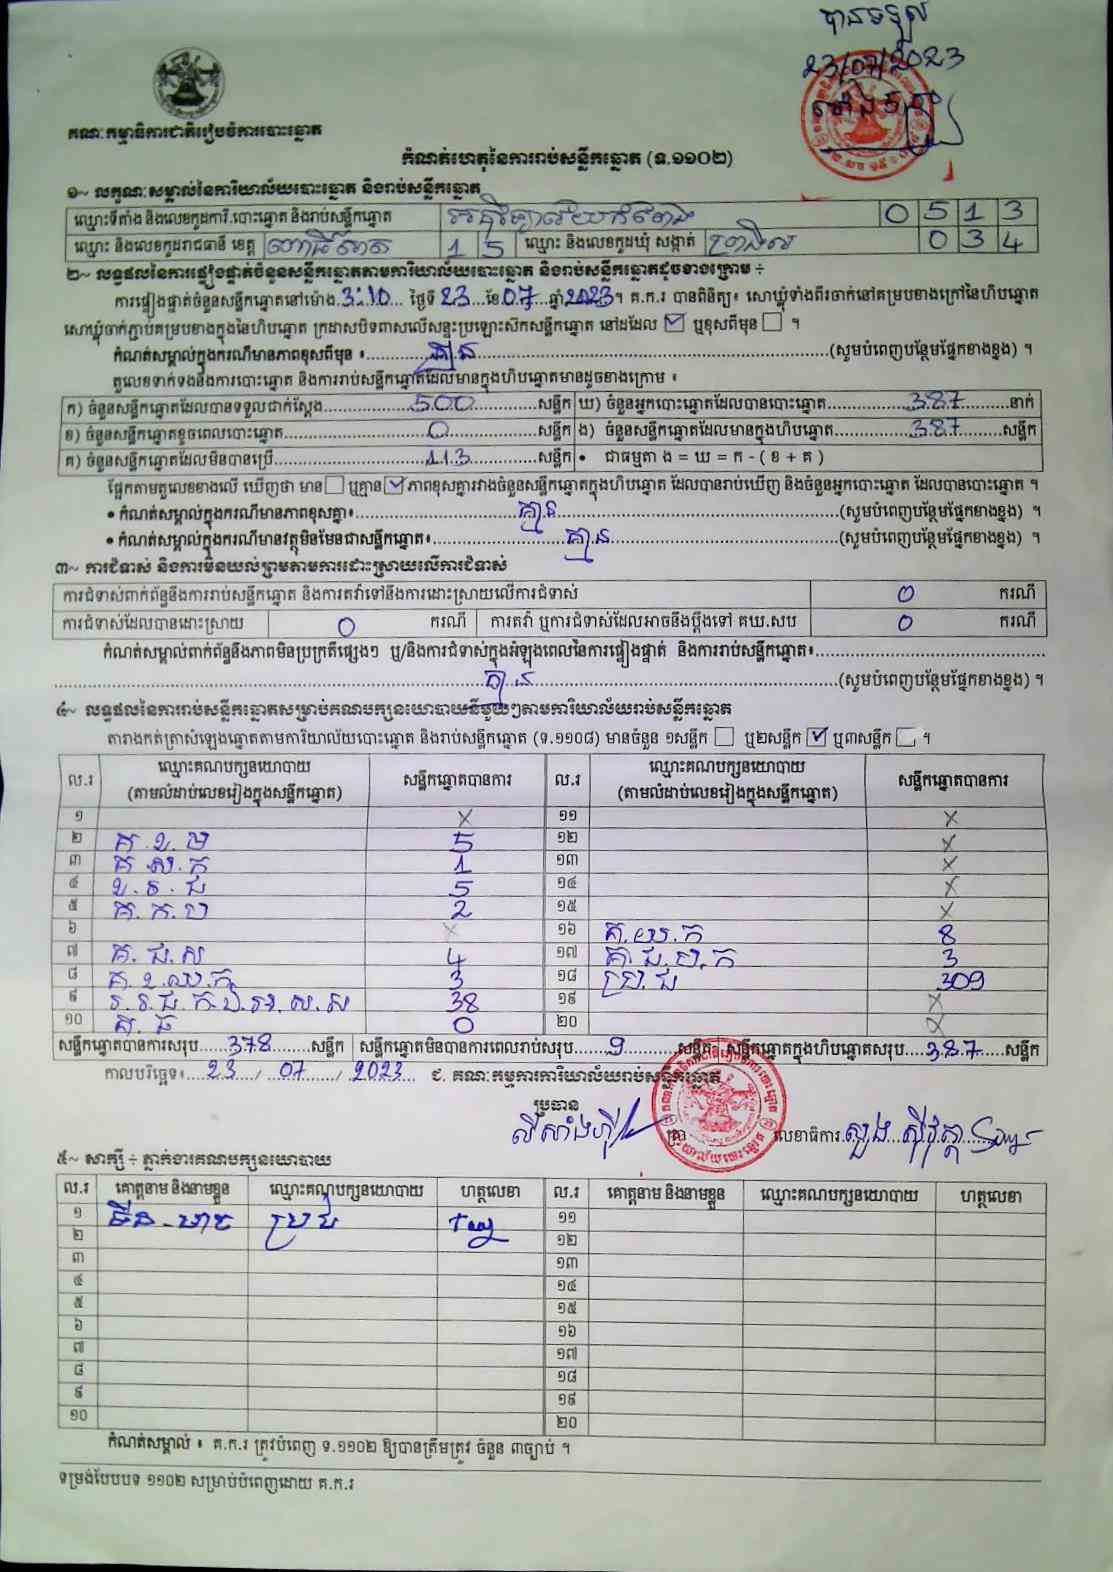 បានទទួល
23/07/2023
គណៈកម្មាធិការជាតិរៀបចំការបោះឆ្នោត
កំណត់ហេតុនៃការរាប់សន្លឹកឆ្នោត (ទ.១១០២)
១~ លក្ខណៈសម្គាល់នៃការិយាល័យបោះឆ្នោត និងរាប់សន្លឹកឆ្នោត
ឈ្មោះទីតាំង និងលេខកូដការិ.បោះឆ្នោត និងរាប់សន្លឹកឆ្នោត 0 5 1 3
ឈ្មោះ និងលេខកូដរាជធានី ខេត្ត ពោធិ៍សាត់ 1 5 ឈ្មោះ និងលេខកូដឃុំ សង្កាត់ 0 3 4
២~ លទ្ធផលនៃការផ្ទៀងផ្ទាត់ចំនួនសន្លឹកឆ្នោតតាមការិយាល័យបោះឆ្នោត និងរាប់សន្លឹកឆ្នោតដូចខាងក្រោម ÷
ការផ្ទៀងផ្ទាត់ចំនួនសន្លឹកឆ្នោតនៅម៉ោង 3:10 ថ្ងៃទី 23 ខែ 07 ឆ្នាំ 2023។ គ.ក.រ បានពិនិត្យ៖ សោឃ្លុំទាំងពីរចាក់នៅគម្របខាងក្រៅនៃហិបឆ្នោត
សោឃ្លុំចាក់ភ្ជាប់គម្របខាងក្នុងនៃហិបឆ្នោត ក្រដាសបិទពាសលើសន្ទះប្រឡោះសៀកសន្លឹកឆ្នោត នៅដដែល ☑ ឬខុសពីមុន ☐ ។
កំណត់សម្គាល់ក្នុងករណីមានភាពខុសពីមុន ៖ គ្មាន (សូមបំពេញបន្ថែមផ្នែកខាងខ្នង) ។
តួលេខទាក់ទងនឹងការបោះឆ្នោត និងការរាប់សន្លឹកឆ្នោតដែលមានក្នុងហិបឆ្នោតមានដូចខាងក្រោម ៖
ក) ចំនួនសន្លឹកឆ្នោតដែលបានទទួលជាក់ស្តែង 500 សន្លឹក ឃ) ចំនួនអ្នកបោះឆ្នោតដែលបានបោះឆ្នោត 387 នាក់
ខ) ចំនួនសន្លឹកឆ្នោតខូចពេលបោះឆ្នោត 0 សន្លឹក ង) ចំនួនសន្លឹកឆ្នោតដែលមានក្នុងហិបឆ្នោត 387 សន្លឹក
គ) ចំនួនសន្លឹកឆ្នោតដែលមិនបានប្រើ 113 សន្លឹក • ជាធម្មតា ង = ឃ = ក - ( ខ + គ )
ផ្អែកតាមតួលេខខាងលើ ឃើញថា មាន ☐ ឬគ្មាន ☑ ភាពខុសគ្នារវាងចំនួនសន្លឹកឆ្នោតក្នុងហិបឆ្នោត ដែលបានរាប់ឃើញ និងចំនួនអ្នកបោះឆ្នោត ដែលបានបោះឆ្នោត ។
• កំណត់សម្គាល់ក្នុងករណីមានភាពខុសគ្នា៖ គ្មាន (សូមបំពេញបន្ថែមផ្នែកខាងខ្នង) ។
• កំណត់សម្គាល់ក្នុងករណីមានវត្ថុមិនមែនជាសន្លឹកឆ្នោត៖ គ្មាន (សូមបំពេញបន្ថែមផ្នែកខាងខ្នង) ។
៣~ ការជំទាស់ និងការមិនយល់ព្រមតាមការដោះស្រាយលើការជំទាស់
ការជំទាស់ពាក់ព័ន្ធនឹងការរាប់សន្លឹកឆ្នោត និងការតវ៉ាទៅនឹងការដោះស្រាយលើការជំទាស់ 0 ករណី
ការជំទាស់ដែលបានដោះស្រាយ 0 ករណី ការតវ៉ា ឬការជំទាស់ដែលអាចនឹងប្តឹងទៅ គឃ.សប 0 ករណី
កំណត់សម្គាល់ពាក់ព័ន្ធនឹងភាពមិនប្រក្រតីផ្សេងៗ ឬ/និងការជំទាស់ក្នុងអំឡុងពេលនៃការផ្ទៀងផ្ទាត់ និងការរាប់សន្លឹកឆ្នោត៖
គ្មាន (សូមបំពេញបន្ថែមផ្នែកខាងខ្នង) ។
៤~ លទ្ធផលនៃការរាប់សន្លឹកឆ្នោតសម្រាប់គណបក្សនយោបាយនីមួយៗតាមការិយាល័យរាប់សន្លឹកឆ្នោត
តារាងកត់ត្រាសំឡេងឆ្នោតតាមការិយាល័យបោះឆ្នោត និងរាប់សន្លឹកឆ្នោត (ទ.១១០៨) មានចំនួន ១សន្លឹក ☐ ឬ២សន្លឹក ☑ ឬ៣សន្លឹក ☐ ។
ល.រ ឈ្មោះគណបក្សនយោបាយ (តាមលំដាប់លេខរៀងក្នុងសន្លឹកឆ្នោត) សន្លឹកឆ្នោតបានការ ល.រ ឈ្មោះគណបក្សនយោបាយ (តាមលំដាប់លេខរៀងក្នុងសន្លឹកឆ្នោត) សន្លឹកឆ្នោតបានការ
១ x ១១ x
២ គ.ខ.ម 5 ១២ x
៣ គ.ស.ក 1 ១៣ x
៤ ខ.រ.ជ 5 ១៤ x
៥ គ.ក.ប 2 ១៥ x
៦ x ១៦ គ.យ.ក 8
៧ គ.ជ.ស 4 ១៧ គ.ជ.ប.ក 3
៨ គ.ខ.ឈ.ក 3 ១៨ ប្រ.ជ 309
៩ 38 ១៩ x
១០ គ.ធ 0 ២០ x
សន្លឹកឆ្នោតបានការសរុប 378 សន្លឹក សន្លឹកឆ្នោតមិនបានការពេលរាប់សរុប 9 សន្លឹក សន្លឹកឆ្នោតក្នុងហិបឆ្នោតសរុប 387 សន្លឹក
កាលបរិច្ឆេទ៖ 23 / 07 / 2023 ៩. គណៈកម្មការការិយាល័យរាប់សន្លឹកឆ្នោត
ប្រធាន
ត្រា លេខាធិការ
៥~ សាក្សី ÷ ភ្នាក់ងារគណបក្សនយោបាយ
ល.រ គោត្តនាម និងនាមខ្លួន ឈ្មោះគណបក្សនយោបាយ ហត្ថលេខា ល.រ គោត្តនាម និងនាមខ្លួន ឈ្មោះគណបក្សនយោបាយ ហត្ថលេខា
១ ១១
២ ១២
៣ ១៣
៤ ១៤
៥ ១៥
៦ ១៦
៧ ១៧
៨ ១៨
៩ ១៩
១០ ២០
កំណត់សម្គាល់ ៖ គ.ក.រ ត្រូវបំពេញ ទ.១១០២ ឱ្យបានត្រឹមត្រូវ ចំនួន ៣ច្បាប់ ។
ទម្រង់បែបបទ ១១០២ សម្រាប់បំពេញដោយ គ.ក.រ